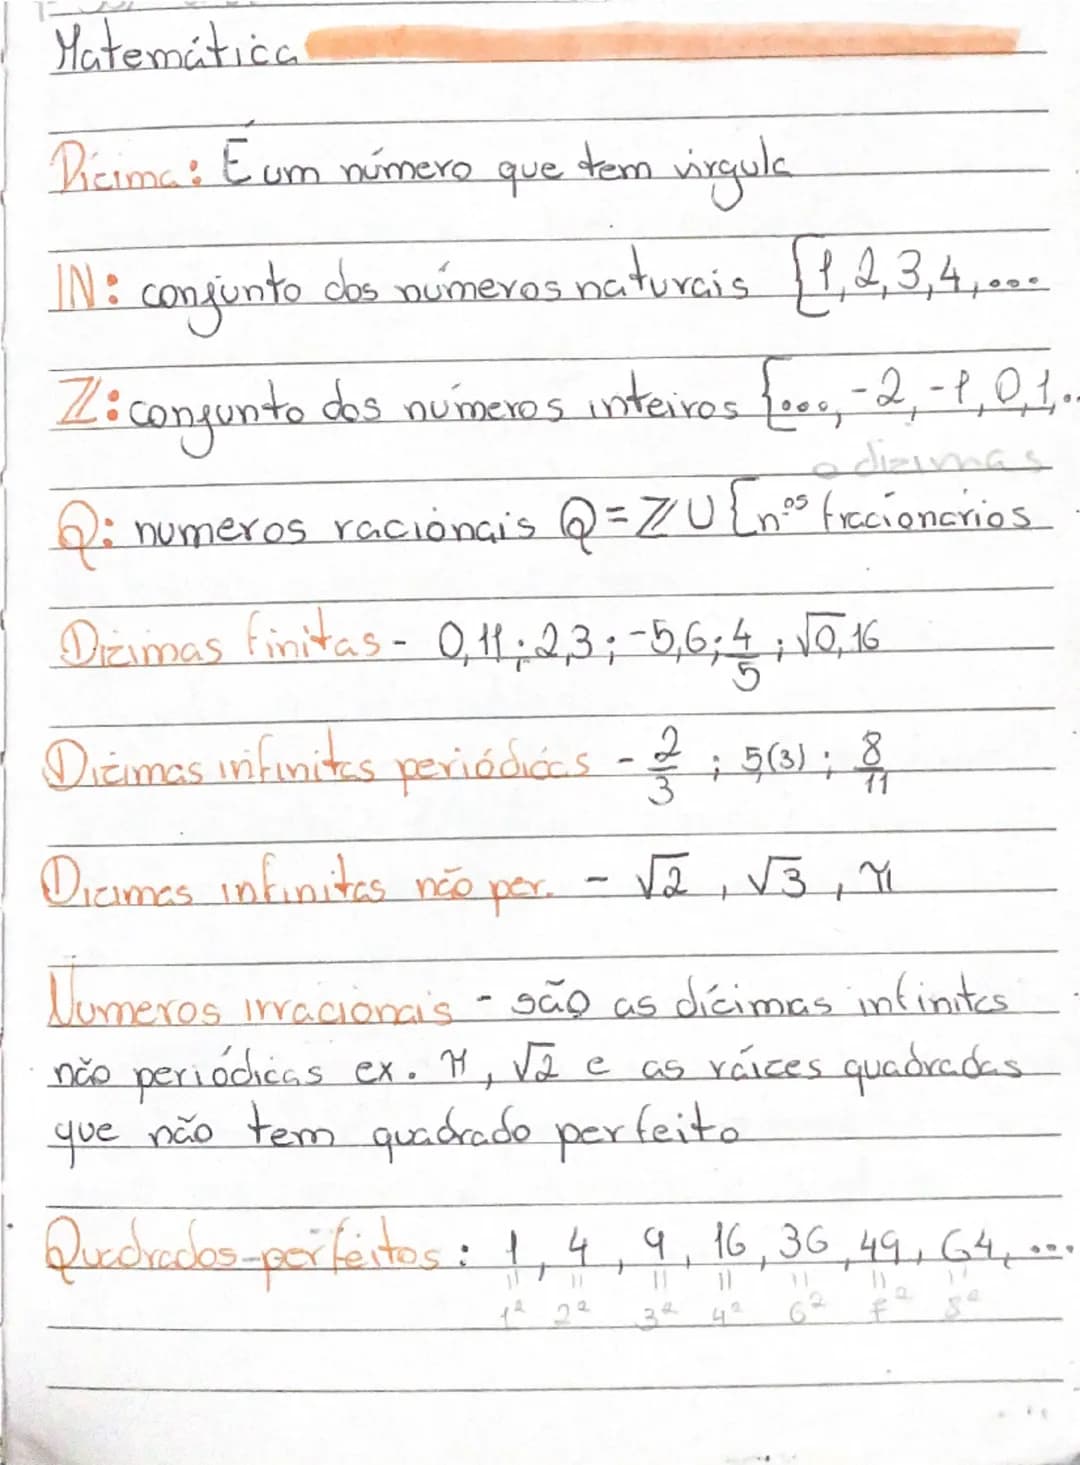 Matemática
Dícima: É um número que tem vírgula
IN: conjunto dos números naturais {1,2,3,4,...
Z: conjunto dos números inteiros {..., -2, -1, 0, 1, ..
o dizimas
Q: numeros racionais Q = Z U {nºs fraccionários
Dizimas finitas - 0,11; 2,3; -5,6; 4/5; √0,16
Dizimas infinitas periódicas - 2/3; 5,(3); 8/11
Dicimas infinitas não per. - √2, √3, π
Numeros irracionais - são as dícimas infinitas
não periódicas ex. π, √2 e as raízes quadradas
que não tem quadrado perfeito
Quadrados perfeitos: 1, 4, 9, 16, 36, 49, 64, ...
= = = = = = =
1² 2² 3² 4² 6² 7² 8²